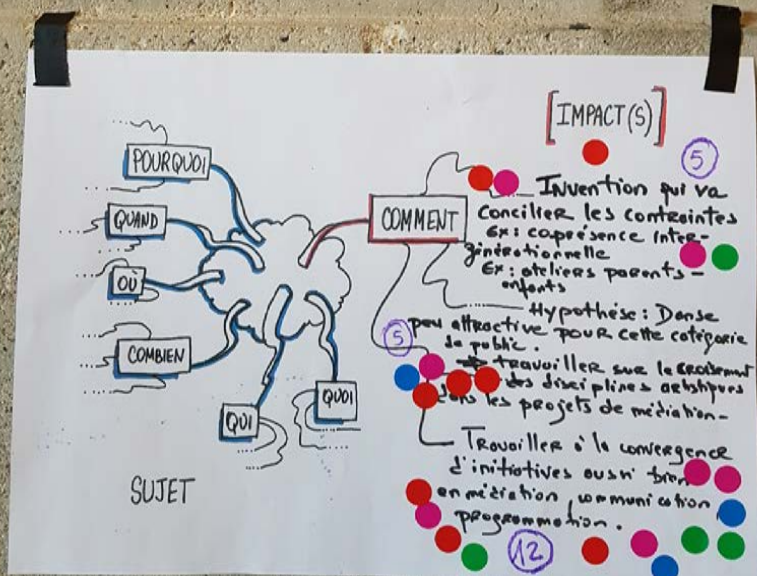 POURQUOI
QUAND
OÙ
COMBIEN
QUI
QUOI
SUJET
COMMENT
[IMPACT(S)]
5
Invention qui va
concilier les contraintes
Ex: coprésence inter-
générationnelle
Ex: ateliers parents-
enfants
Hypothèse: Danse
peu attractive pour cette catégorie
de public.
5
→ travailler sur le croisement
des disciplines artistiques
dans les projets de médiation-
Travailler à la convergence
d'initiatives aussi bien
en médiation, communication
programmation.
12